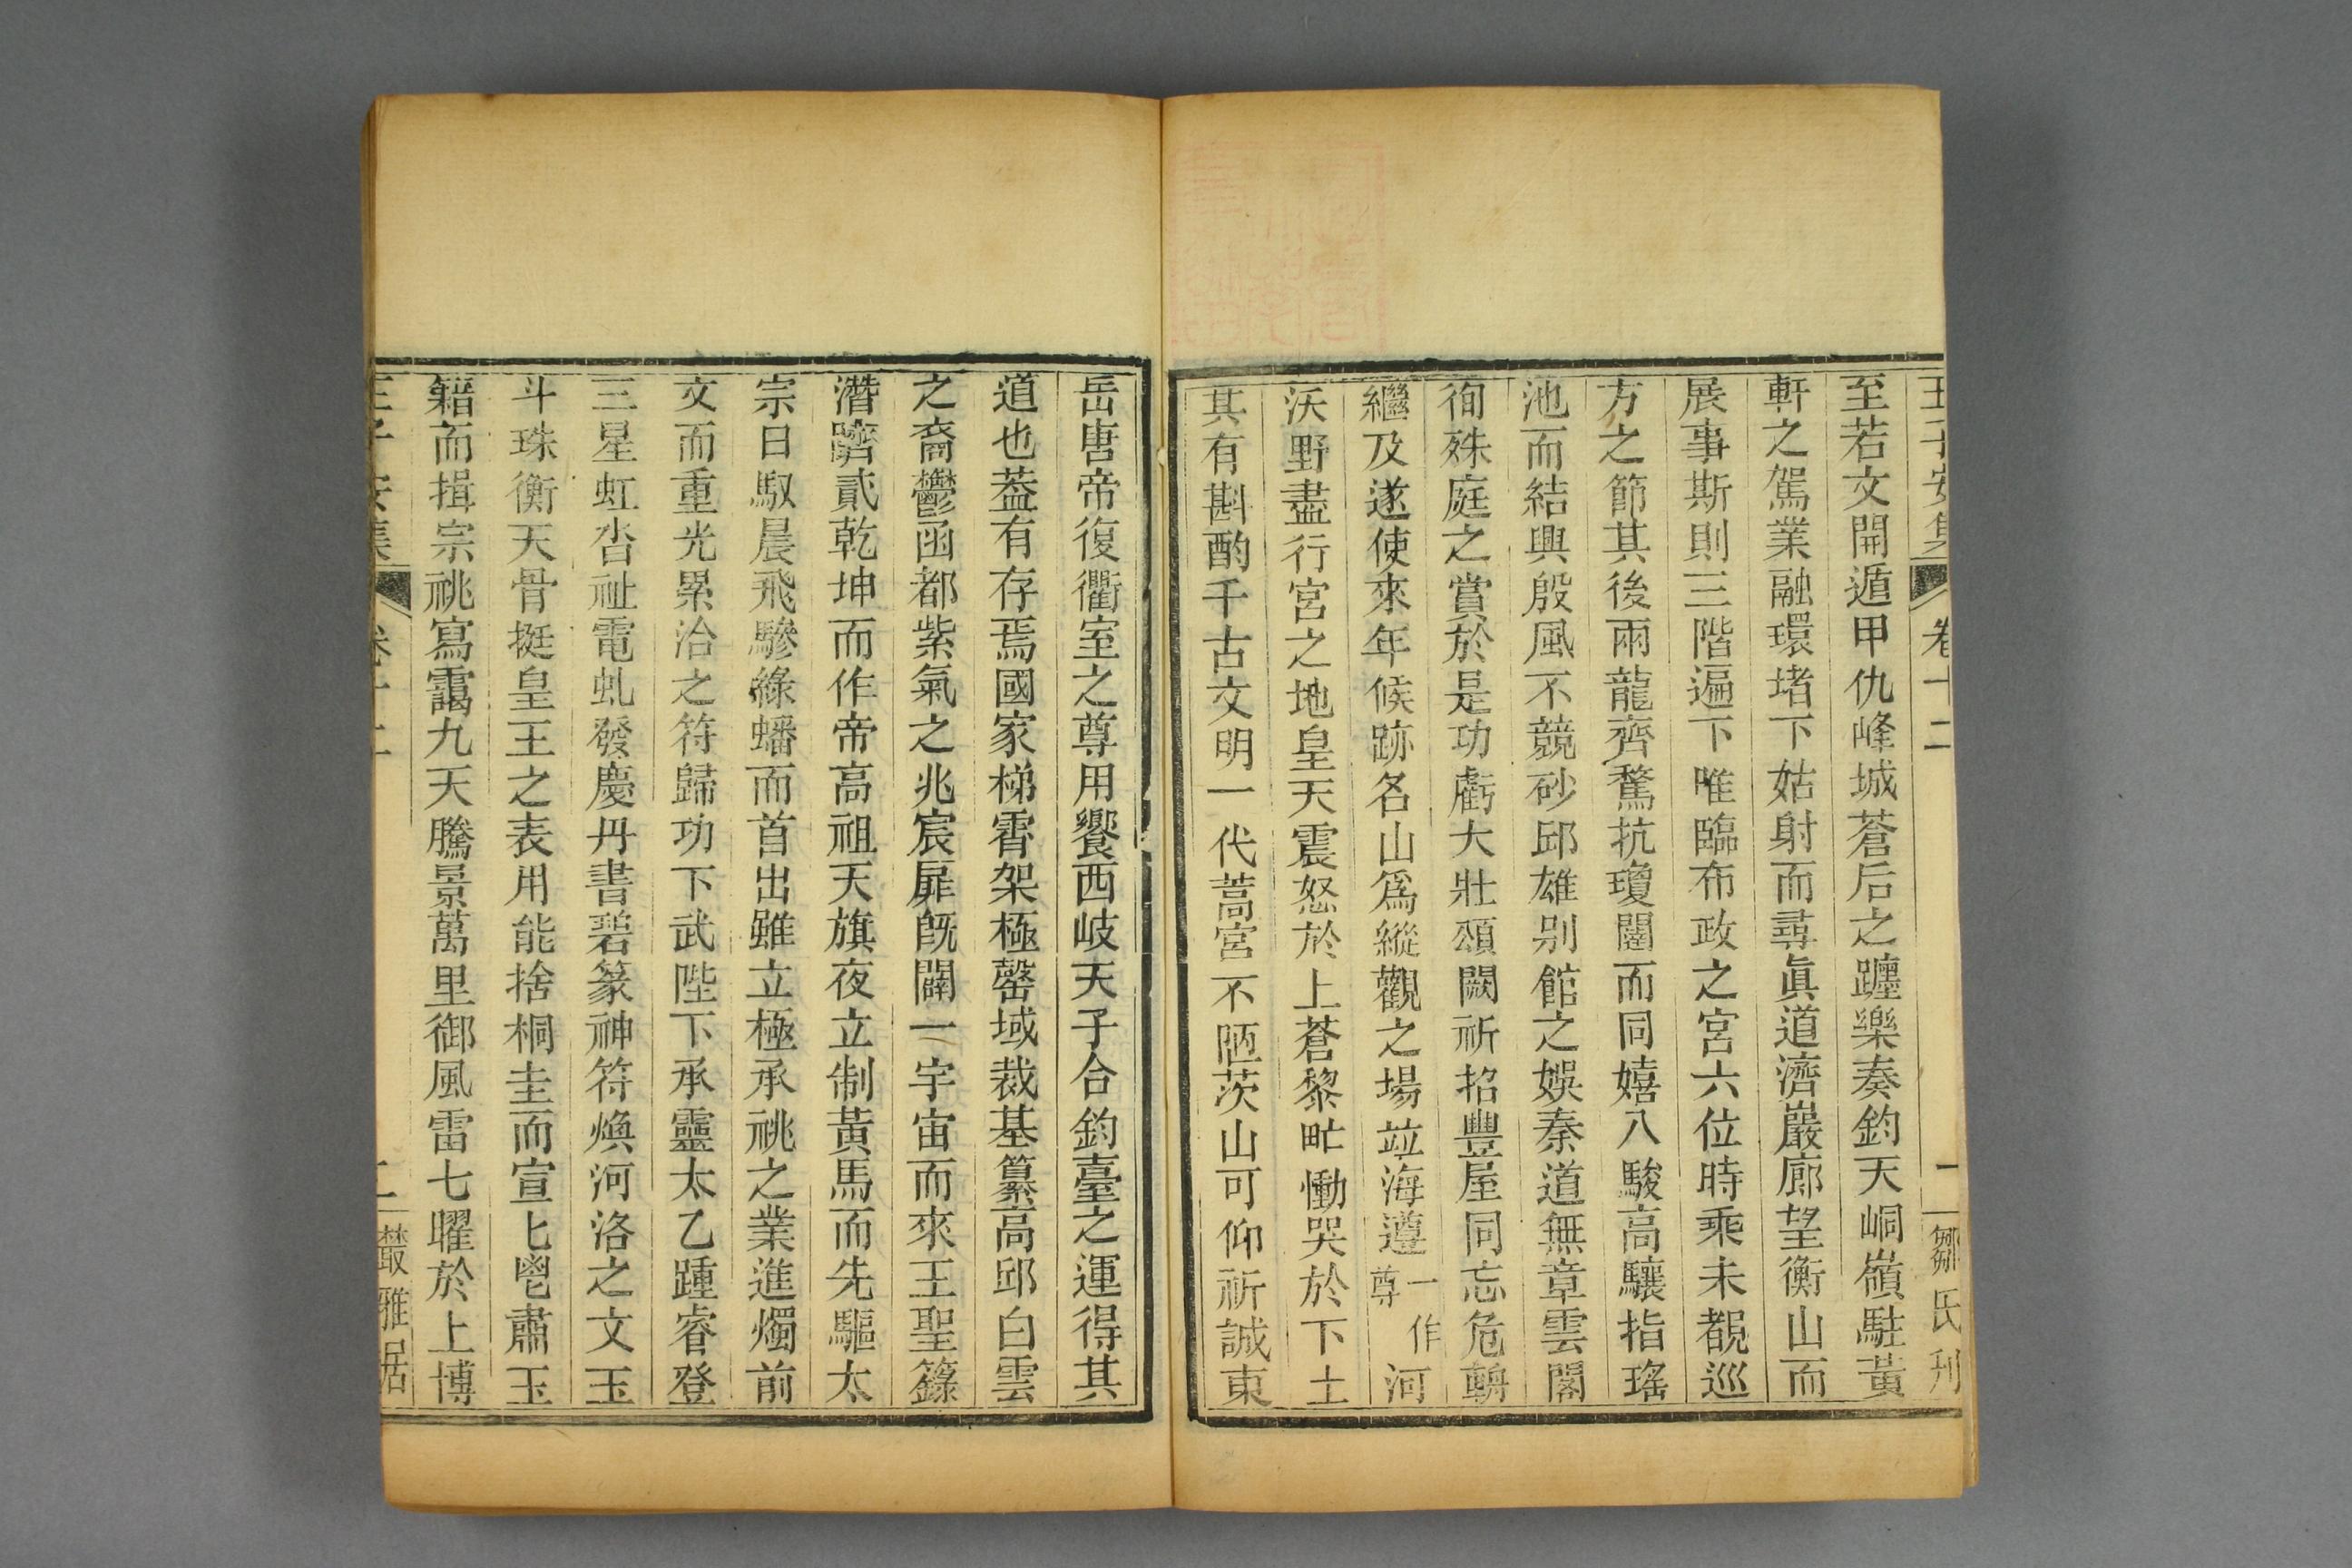 王子安集 卷十二 二 鄒氏刋
至若文開遁甲仇峰城蒼后之躔樂奏鈞天峒嶺駐黃
軒之駕業融環堵下姑射而尋眞道濟巖廊望衡山而
展事斯則三階遍下唯臨布政之宮六位時乘未覩巡
方之節其後兩龍齊騖抗瓊闥而同嬉八駿高驤指瑤
池而結興殷風不競砂邱雄别館之娛秦道無章雲閣
徇殊庭之賞於是功虧大壯頌闕祈招豐屋同忘危輈
繼及遂使來年候跡名山爲縱觀之場竝海遵一作尊河
沃野盡行宮之地皇天震怒於上蒼黎甿慟哭於下土
其有斟酌千古文明一代蒿宮不陋茨山可仰祈誠東
岳唐帝復衢室之尊用饗西岐天子合鈞臺之運得其
道也葢有存焉國家梯霄架極罄域裁基纂高邱白雲
之裔鬱函都紫氣之兆宸扉旣闢一宇宙而來王聖籙
潛躋貳乾坤而作帝高祖天旗夜立制黃馬而先驅太
宗日馭晨飛驂綠蟠而首出雖立極承祧之業進燭前
文而重光累洽之符歸功下武陛下承靈太乙踵睿登
三星虹沓祉電虬發慶丹書碧篆神符煥河洛之文玉
斗珠衡天骨挺皇王之表用能捨桐圭而宣匕鬯肅玉
籍而揖宗祧寫靄九天騰景萬里御風雷七曜於上博
王子安集 卷十二 二 叢雅居